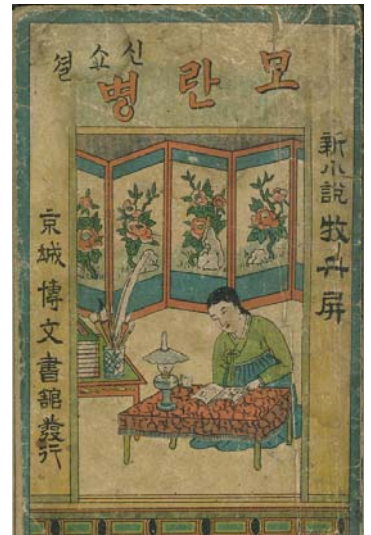 신쇼셜
모란병
新小說 牧丹屏
京城博文書館發行